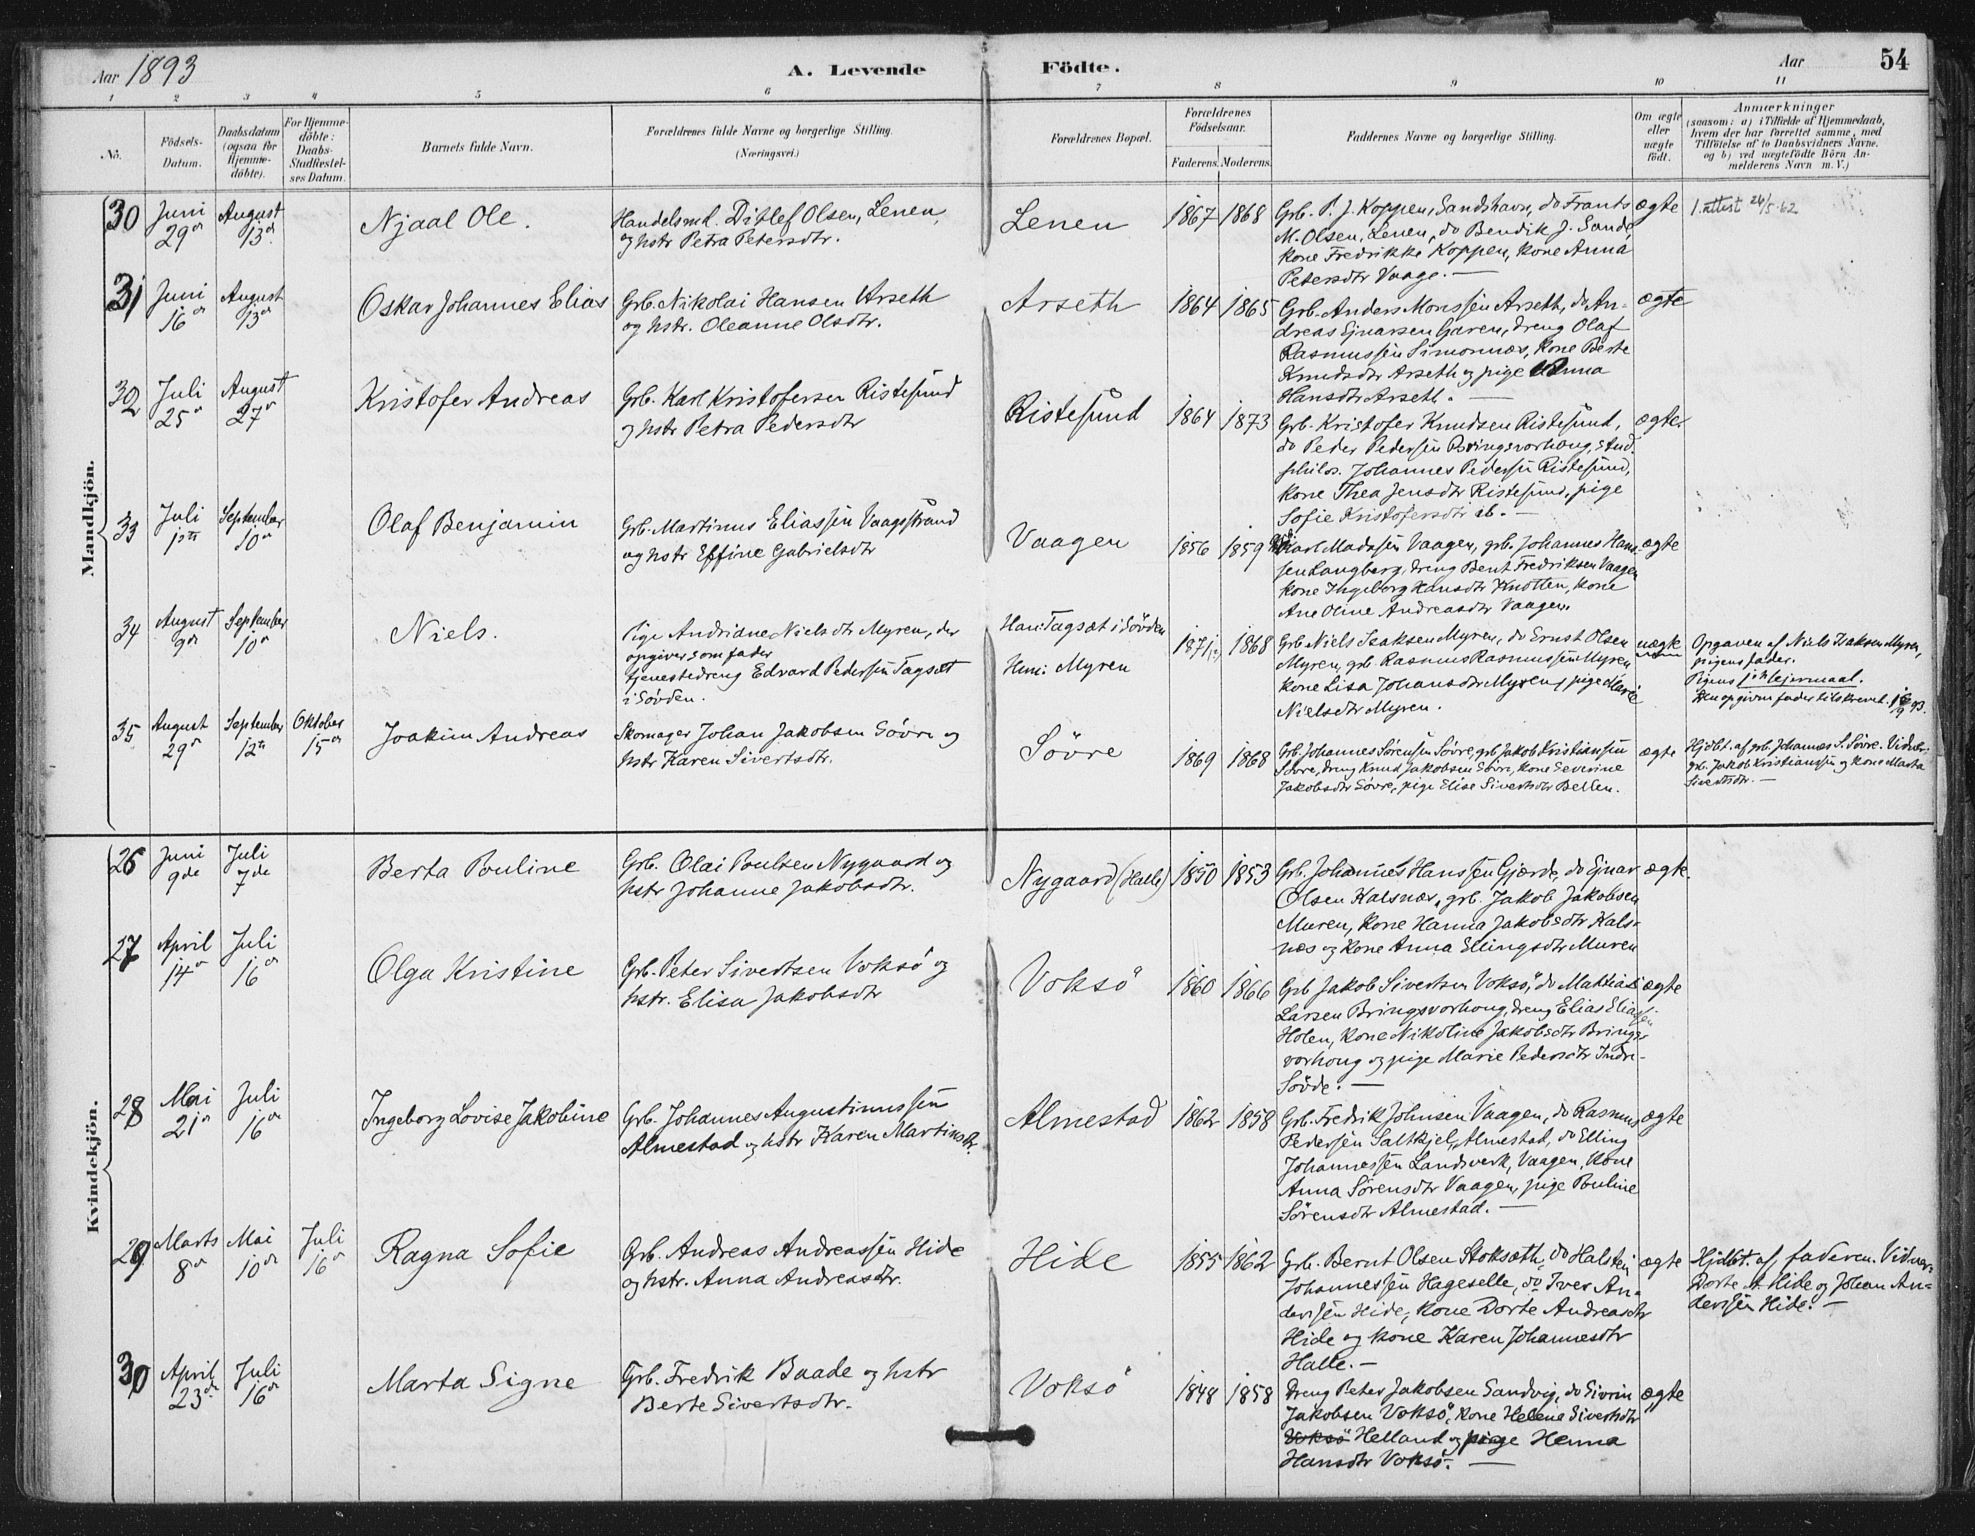 Aar 1893
A. Levende Födte.
Aar
54
1 2 3 4 5 6 7 8 9 10 11
No.
Födsels-
Datum.
Daabsdatum
(ogsaa for
Hjemme-
döbte).
For Hjemme-
döbte:
Daabs-
Stadfæstel-
ses Datum.
Barnets fulde Navn.
Forældrenes fulde Navne og borgerlige Stilling.
(Næringsvei.)
Forældrenes Bopæl.
Forældrenes
Födselsaar.
Faderens. Moderens.
Faddernes Navne og borgerlige Stilling.
Om ægte
eller
uægte
födt.
Anmærkninger
(saasom: a) i Tilfælde af Hjemmedaab,
hvem der har forrettet samme, med
Tilföielse af to Daabsvidners Navne,
og b) ved uægtefödte Börn An-
melderens Navn m.V.)
Mandkjön.
30
Juni
29de
August
13de
Njaal Ole.
Handelsmd. Ditlef Olsen, Lenen,
og hstr Petra Petersdtr.
Lenen
1867 1868
Grb. P. J. Koppen, Sandshavn, do Frants
M. Olsen, Lenen, do Bendik J. Sande,
kone Fredrikke Koppen, kone Anna
Petersdtr Vaage. —
ægte
1. attest 24/5-62
31
Juni
16de
August
13de
Oskar Johannes Elias
Grb. Nikolai Hansen Arseth
og hstr. Oleanne Olsdtr.
Arseth
1864 1865
Grb. Anders Monssen Arseth, do An-
dreas Ejnarsen Garen, dreng Olaf
Rasmussen Simonnæs, kone Berte
Knudsdtr Arseth og pige Anna
Hansdtr Arseth. —
ægte
32
Juli
25de
August
27de
Kristofer Andreas
Grb. Karl Kristofersen Ristesund
og hstr Petra Pedersdtr
Ristesund
1864 1873
Grb. Kristofer Knudsen Ristesund,
do Peder Pedersen Bringsvorhoug, stud.
philos. Johannes Pedersen Ristesund,
kone Thea Jensdtr Ristesund, pige
Sofie Kristofersdtr ib. —
ægte
33
Juli
1ste
September
10de
Olaf Benjamin
Grb. Martinus Eliassen Vaagsstrand
og hstr Effine Gabrielsdtr
Vaagen
1856 1859
Karl Madssen Vaagen, grb. Johannes Hans-
sen Langberg, dreng Bent Fredriksen Vaagen
kone Ingeborg Hansdtr Knotten, kone
Ane Oline Andreasdtr Vaagen.
ægte
34
August
9de
September
10de
Niels.
Pige Andriane Nielsdtr Myren, der
opgiver som fader
tjenestedreng Edvard Pedersen Tagsæt
i Søvden.
Han: Tagsæt i Søvden
Hun: Myren
1871 1868
Grb Niels Isaksen Myren, do Ernst Olsen
Myren, grb Rasmus Rasmussen Myren
kone Lisa Johansdtr Myren, pige Marie
Nielsdtr Myren.
uægte
Opgaven af Niels Isaksen Myren,
pigens fader.
Pigens 1ste lejermaal.
Den opgivne fader tilskrevet. 93.
35
August
29de
September
12te
Oktober
15de
Joakim Andreas
Skomager Johan Jakobsen Søvre og
hstr Karen Sivertsdtr.
Søvre
1869 1868
Grb. Johannes Sørensen Søvre, grb. Jakob Kristiansen
Søvre, dreng Knud Jakobsen Søvre, kone Severine
Jakobsdtr Søvre, pige Elise Sivertsdtr Belten.
ægte
Hjdbt. af grb. Johannes S. Søvre. Vidner:
grb. Jakob Kristianssen og kone Marta
Sivertsdtr. —
Kvindekjön.
26
Juni
9de
Juli
7de
Berta Pouline
Grb. Olai Poulsen Nygaard og
hstr Johanne Jakobsdtr.
Nygaard (Halle)
1850 1853
Grb. Johannes Hanssen Gjærde, do Ejnar
Olsen Kalsnæs, grb. Jakob Jakobsen
Muren, kone Hanna Jakobsdtr Kals-
næs og kone Anna Ellingsdtr Muren
ægte.
27
April
14de
Juli
16de
Olga Kristine
Grb. Peter Sivertsen Voksø og
hstr. Elisa Jakobsdtr
Voksø
1860 1866
Grb Jakob Sivertsen Voksø, do Mattias
Larsen Bringsvorhoug, dreng Elias Eliassen
Holen, kone Nikoline Jakobsdtr Brings-
vorhoug og pige Marie Pedersdtr Indre-
Søvde. —
ægte
28
Mai
21de
Juli
16de
Ingeborg Lovise Jakobine
Grb. Johannes Augustinussen
Almestad og hstr Karen Martinsdtr.
Almestad
1862 1858
Grb. Fredrik Johnsen Vaagen, do Rasmus
Pedersen Saltkjel, Almestad, do Elling
Johannessen Landsverk, Vaagen, kone
Anna Sørensdtr Vaagen, pige Pouline
Sørensdtr Almestad. —
ægte
29
Marts
8de
Mai
10de
Juli
16de
Ragna Sofie
Grb. Andreas Andreassen Hide
og hstr. Anna Andreasdtr.
Hide
1855 1862
Grb. Bernt Olsen Stoksæth, do Halstein
Johannessen Hageselle, do Iver An-
derssen Hide, kone Dorte Andreasdtr
Hide og kone Karen Johannesdtr
Halle. —
ægte
Hjdbt. af faderen. Vidner:
Dorte A. Hide og Johan An-
derssen Hide. —
30
April
23de
Juli
16de
Marta Signe
Grb. Fredrik Baade og hstr
Berte Sivertsdtr.
Voksø
1848 1858
Dreng Peter Jakobsen Sandvig, do Sivrin
Jakobsen Voksø, kone Helene Sivertsdtr
Voksø Helland og pige Henna
Hansdtr Voksø. —
ægte